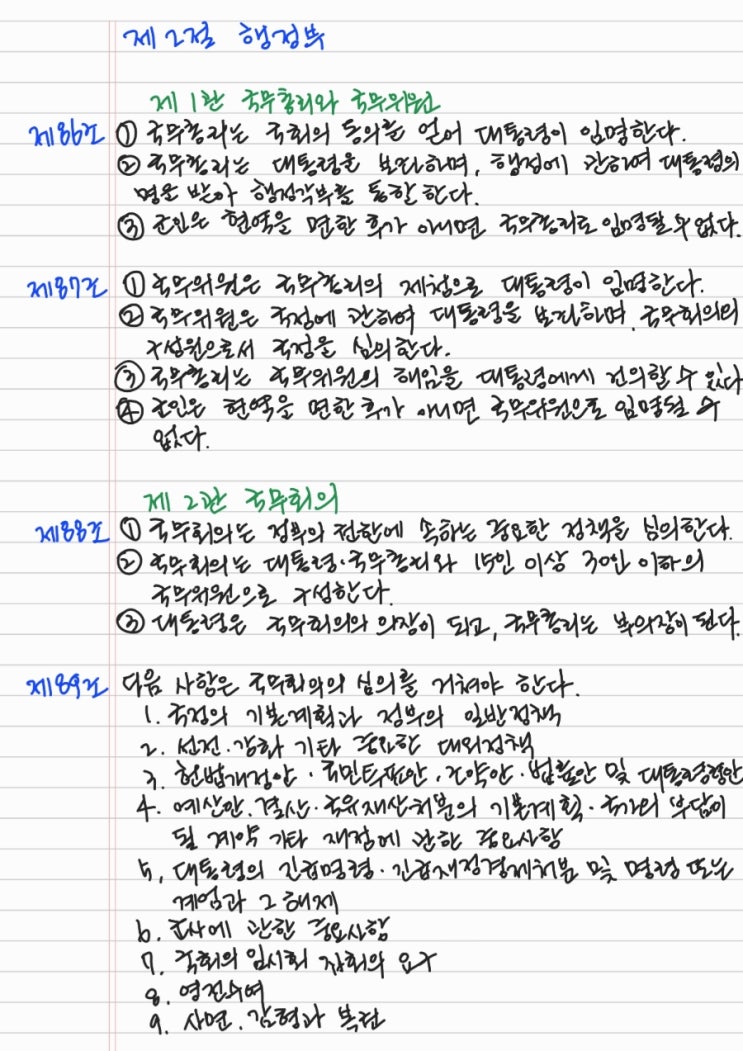 제 2절 행정부
제 1관 국무총리와 국무위원
제86조 ① 국무총리는 국회의 동의를 얻어 대통령이 임명한다.
② 국무총리는 대통령을 보좌하며, 행정에 관하여 대통령의
명을 받아 행정각부를 통할한다.
③ 군인은 현역을 면한 후가 아니면 국무총리로 임명될 수 없다.
제87조 ① 국무위원은 국무총리의 제청으로 대통령이 임명한다.
② 국무위원은 국정에 관하여 대통령을 보좌하며, 국무회의의
구성원으로서 국정을 심의한다.
③ 국무총리는 국무위원의 해임을 대통령에게 건의할 수 있다
④ 군인은 현역을 면한 후가 아니면 국무위원으로 임명될 수
없다.
제 2관 국무회의
제88조 ① 국무회의는 정부의 권한에 속하는 중요한 정책을 심의한다.
② 국무회의는 대통령·국무총리와 15인 이상 30인 이하의
국무위원으로 구성한다.
③ 대통령은 국무회의의 의장이 되고, 국무총리는 부의장이 된다.
제89조 다음 사항은 국무회의의 심의를 거쳐야 한다.
1. 국정의 기본계획과 정부의 일반정책
2. 선전·강화 기타 중요한 대외정책
3. 헌법개정안·국민투표안·조약안·법률안 및 대통령령안
4. 예산안·결산·국유재산처분의 기본계획·국가의 부담이
될 계약 기타 재정에 관한 중요사항
5. 대통령의 긴급명령·긴급재정경제처분 및 명령 또는
계엄과 그 해제
6. 군사에 관한 중요사항
7. 국회의 임시회 집회의 요구
8. 영전수여
9. 사면·감형과 복권